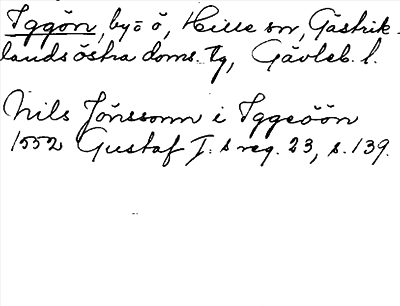 Iggön, by o ö, Hille sn, Gästrik-
lands östra doms. Tg, Gävleb. l.
Nils Jönssonn i Iggeöön
1552 Gustaf I:s reg. 23, s. 139.